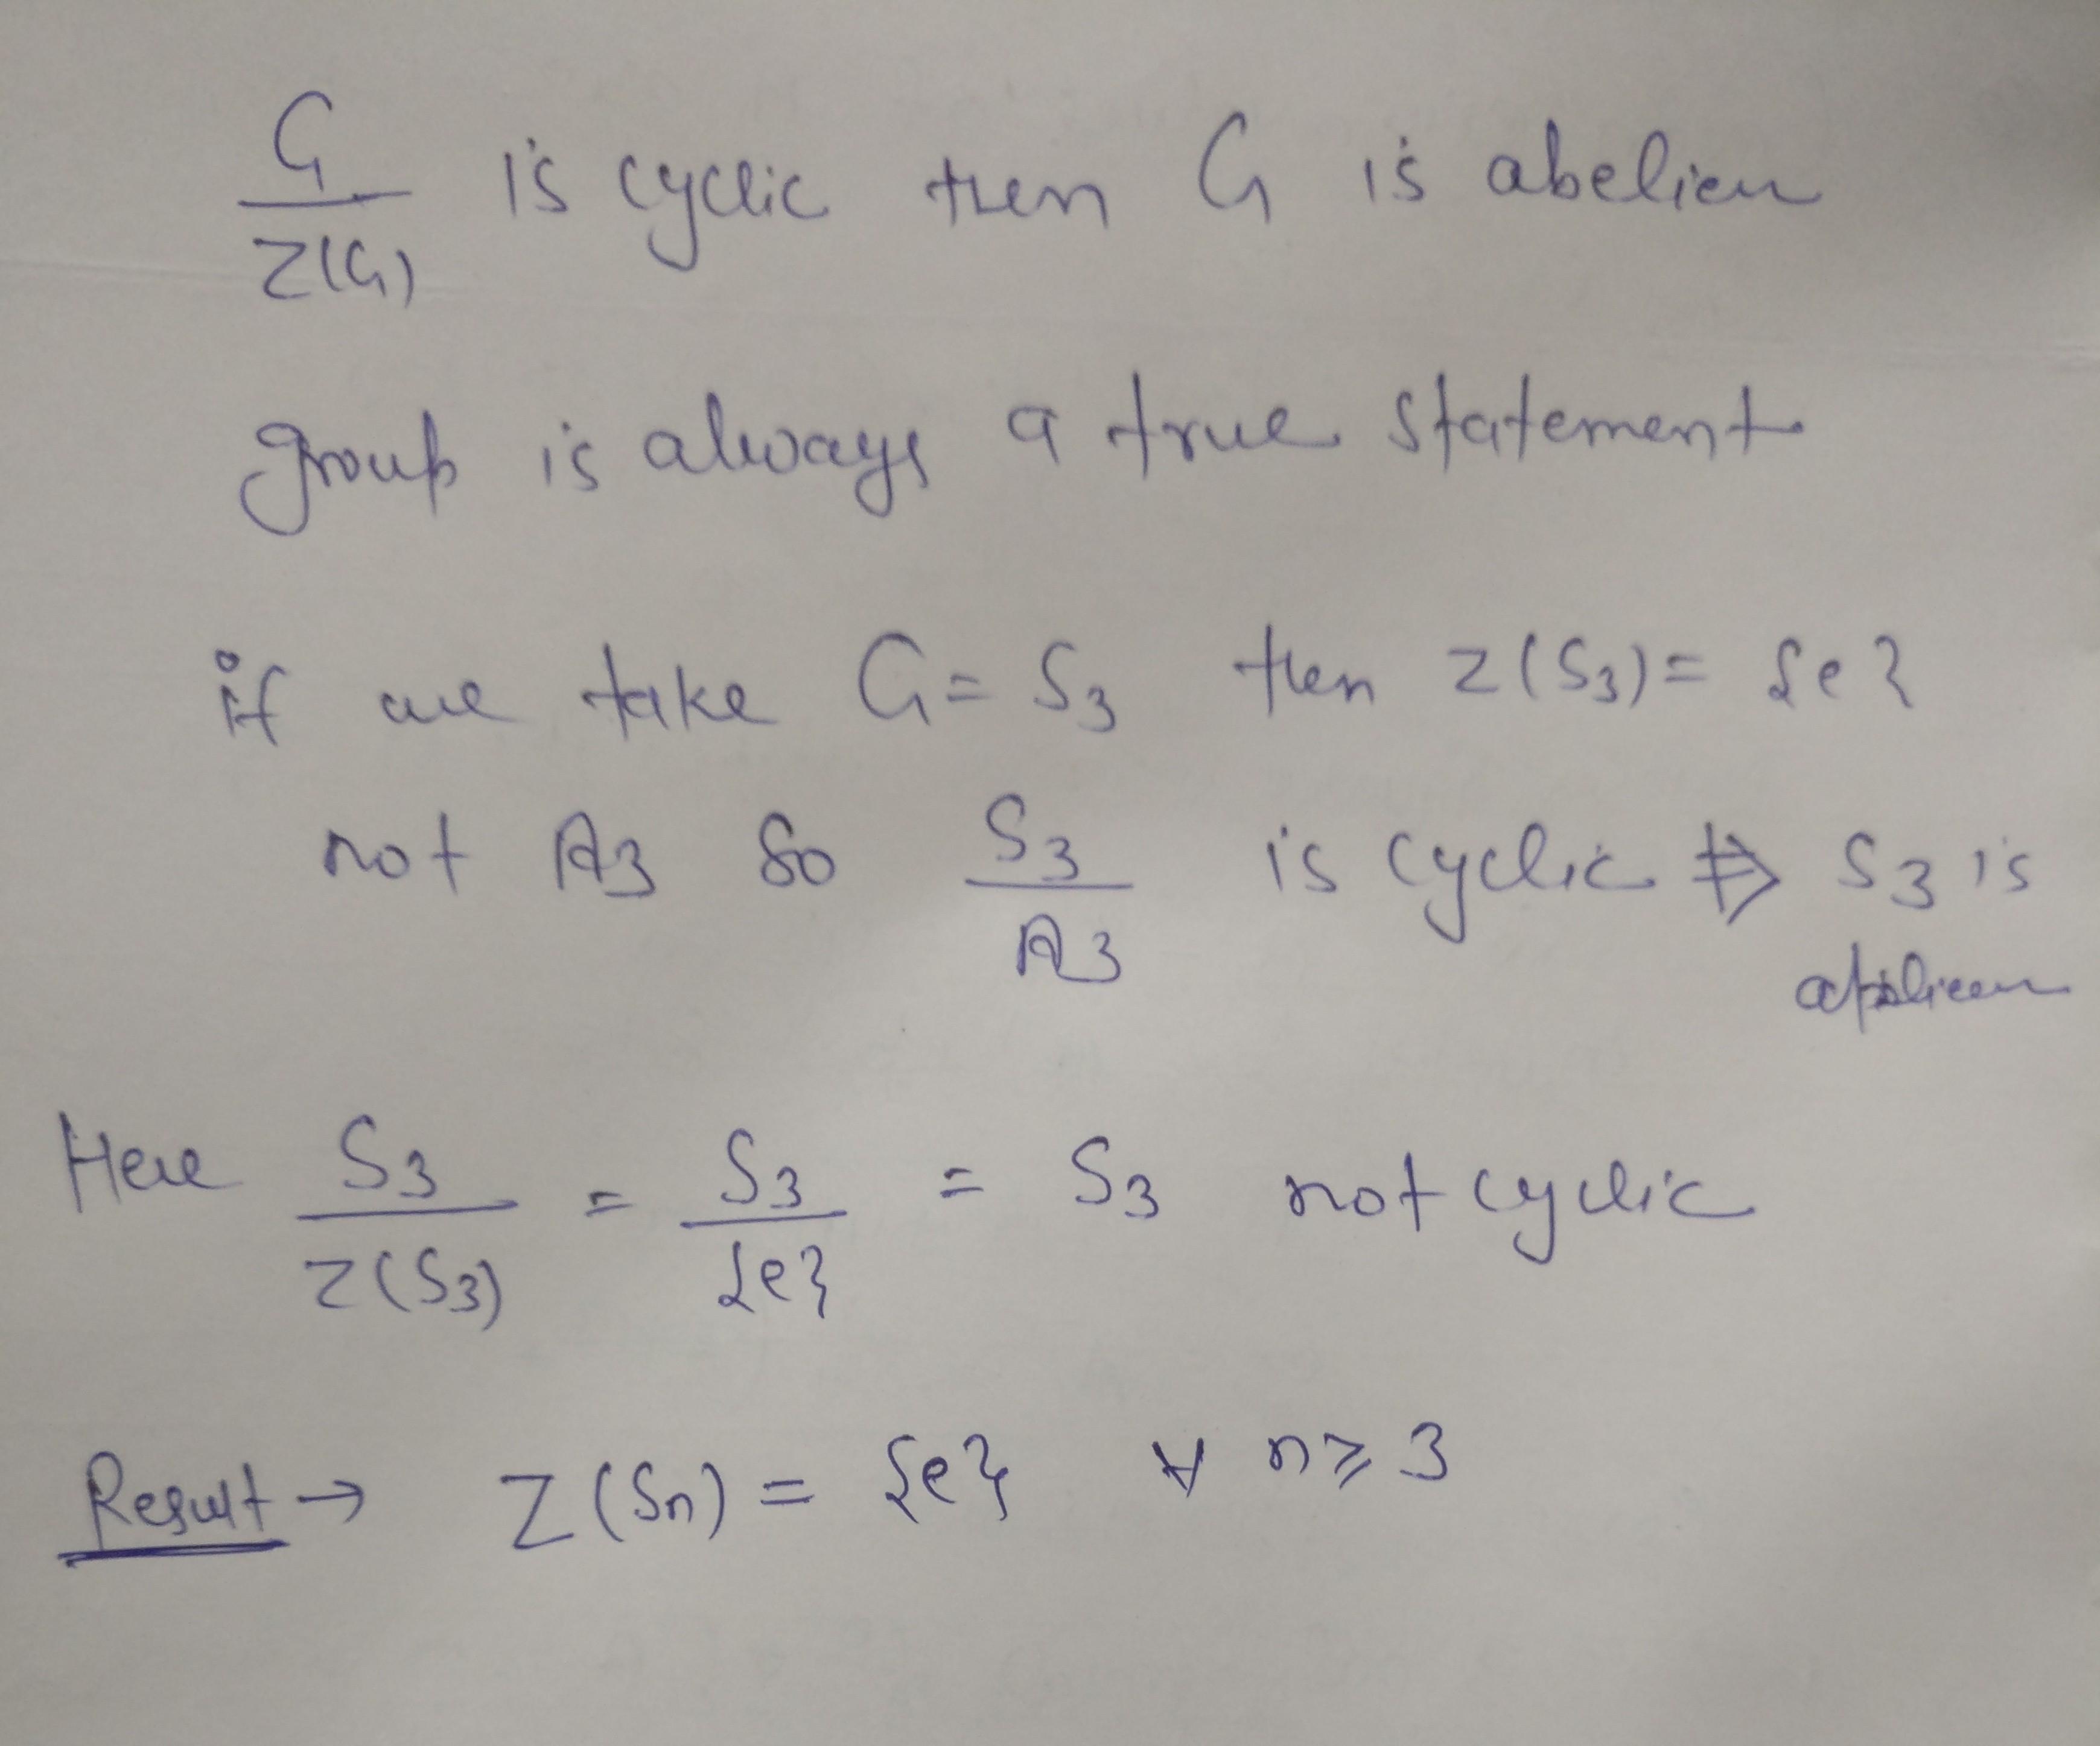 G/Z(G) is cyclic then G is abelian
group is always a true statement
if we take G = S3 then Z(S3) = {e}
not A3 so S3/A3 is cyclic ⇏ S3 is
abelian
Here S3/Z(S3) = S3/{e} = S3 not cyclic
Result → Z(Sn) = {e} ∀ n ≥ 3